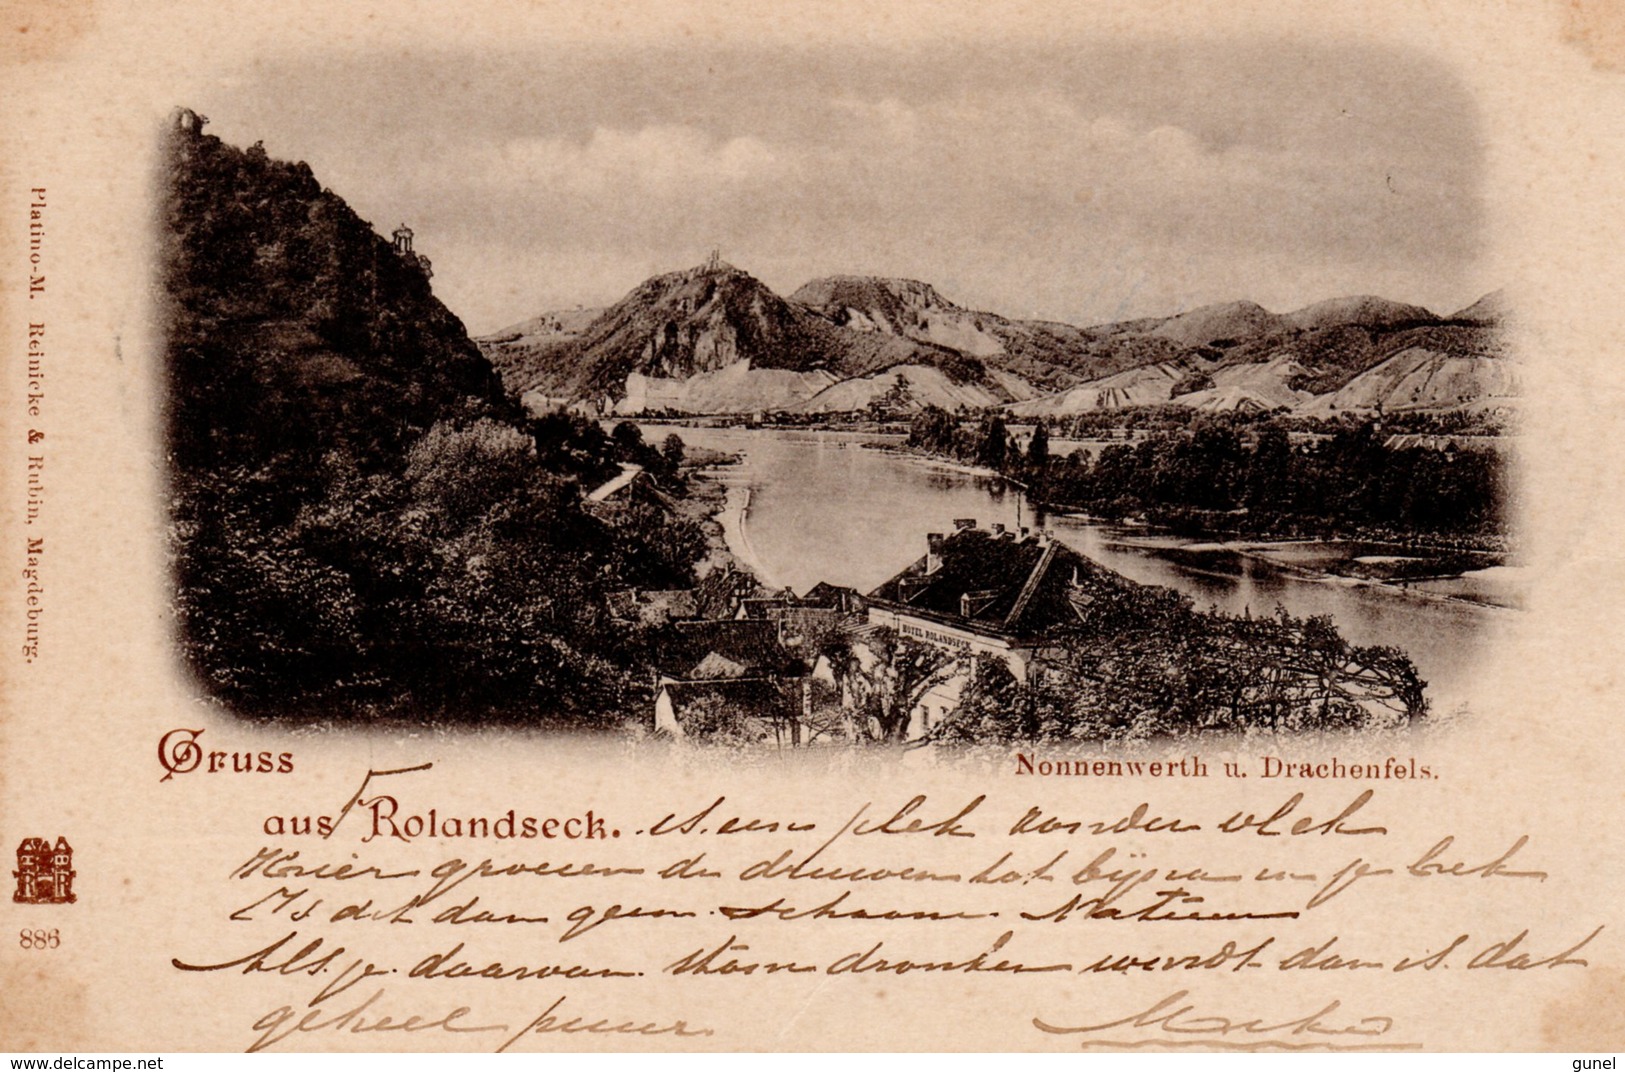 Platino-M. Reinicke & Rubin, Magdeburg.
HOTEL ROLANDSECK
Gruss
aus Rolandseck.
Nonnenwerth u. Drachenfels.
is een plek zonder vlek
Hier groeien de druiven tot bijna in je bek
Is dit dan geen schoone Natuur
Als je daarvan stom dronken wordt dan is dat
geheel puur
886
delcampe.net
gunel